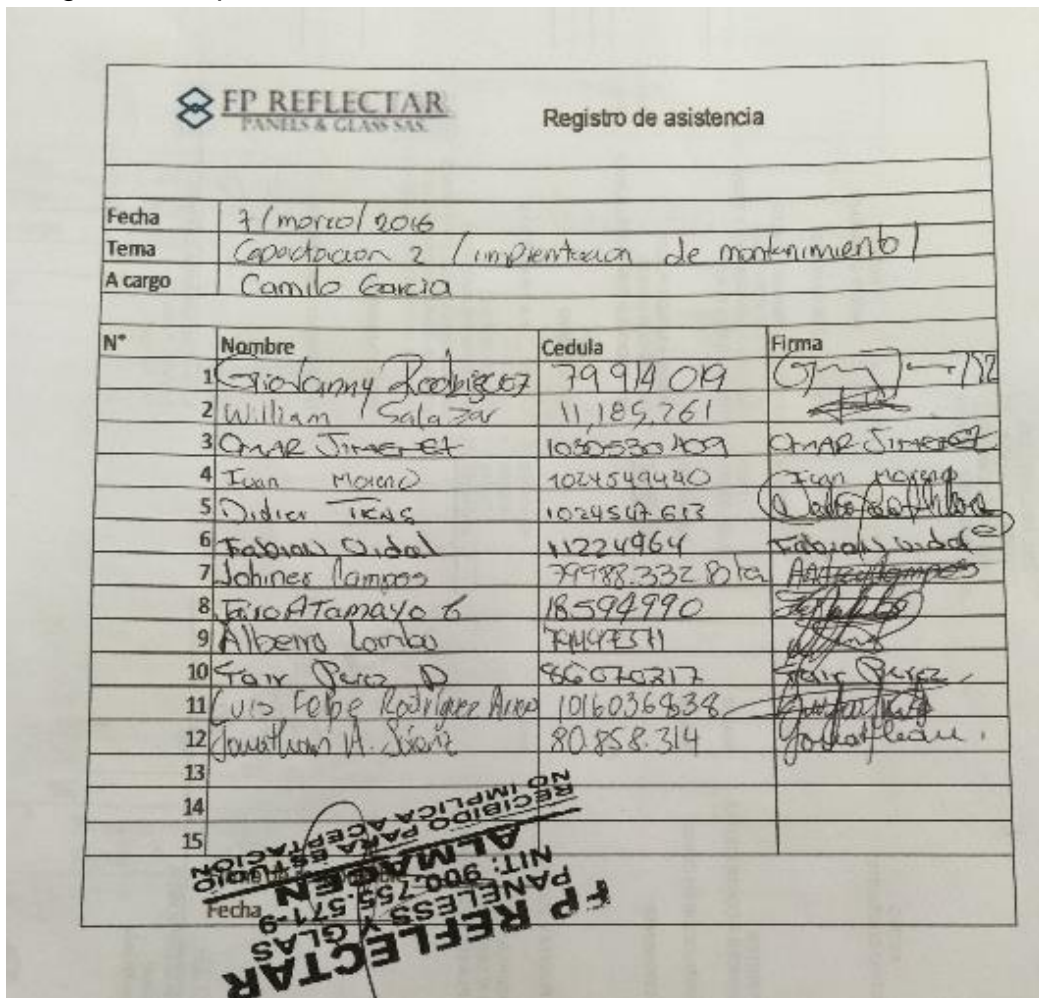 FP REFLECTAR
PANELS & GLASS SAS.
Registro de asistencia
Fecha 7/marzo/2016
Tema Capactacion 2 / implentacion de mantenimiento/
A cargo Camilo Garcia
N° Nombre Cedula Firma
1 Giovanny Rodriguez 79 914 019
2 William Salazar 11,185,261
3 OMAR JIMENEZ 1030530409 OMAR JIMENEZ
4 Ivan Moreno 1024549440 Ivan Moreno
5 Didier 1024547.613
6 Fabian Vidal 11224964 Fabian Vidal
7 Johiner Campos 79988.332 Bta Campos
8 Jairo A Tamayo G 18594990
9 Albeiro
10 Jair Perez D 86070217 Jair Perez
11 Luis Felipe Rodriguez 1016036838
12 Jonathan A. 80.858.314 Jonathan.
13
14
15
Fecha
FP REFLECTAR
PANELESS Y GLAS
NIT: 900.755.571-9
ALMACEN
RECIBIDO PARA ESTUDIO
NO IMPLICA ACEPTACION